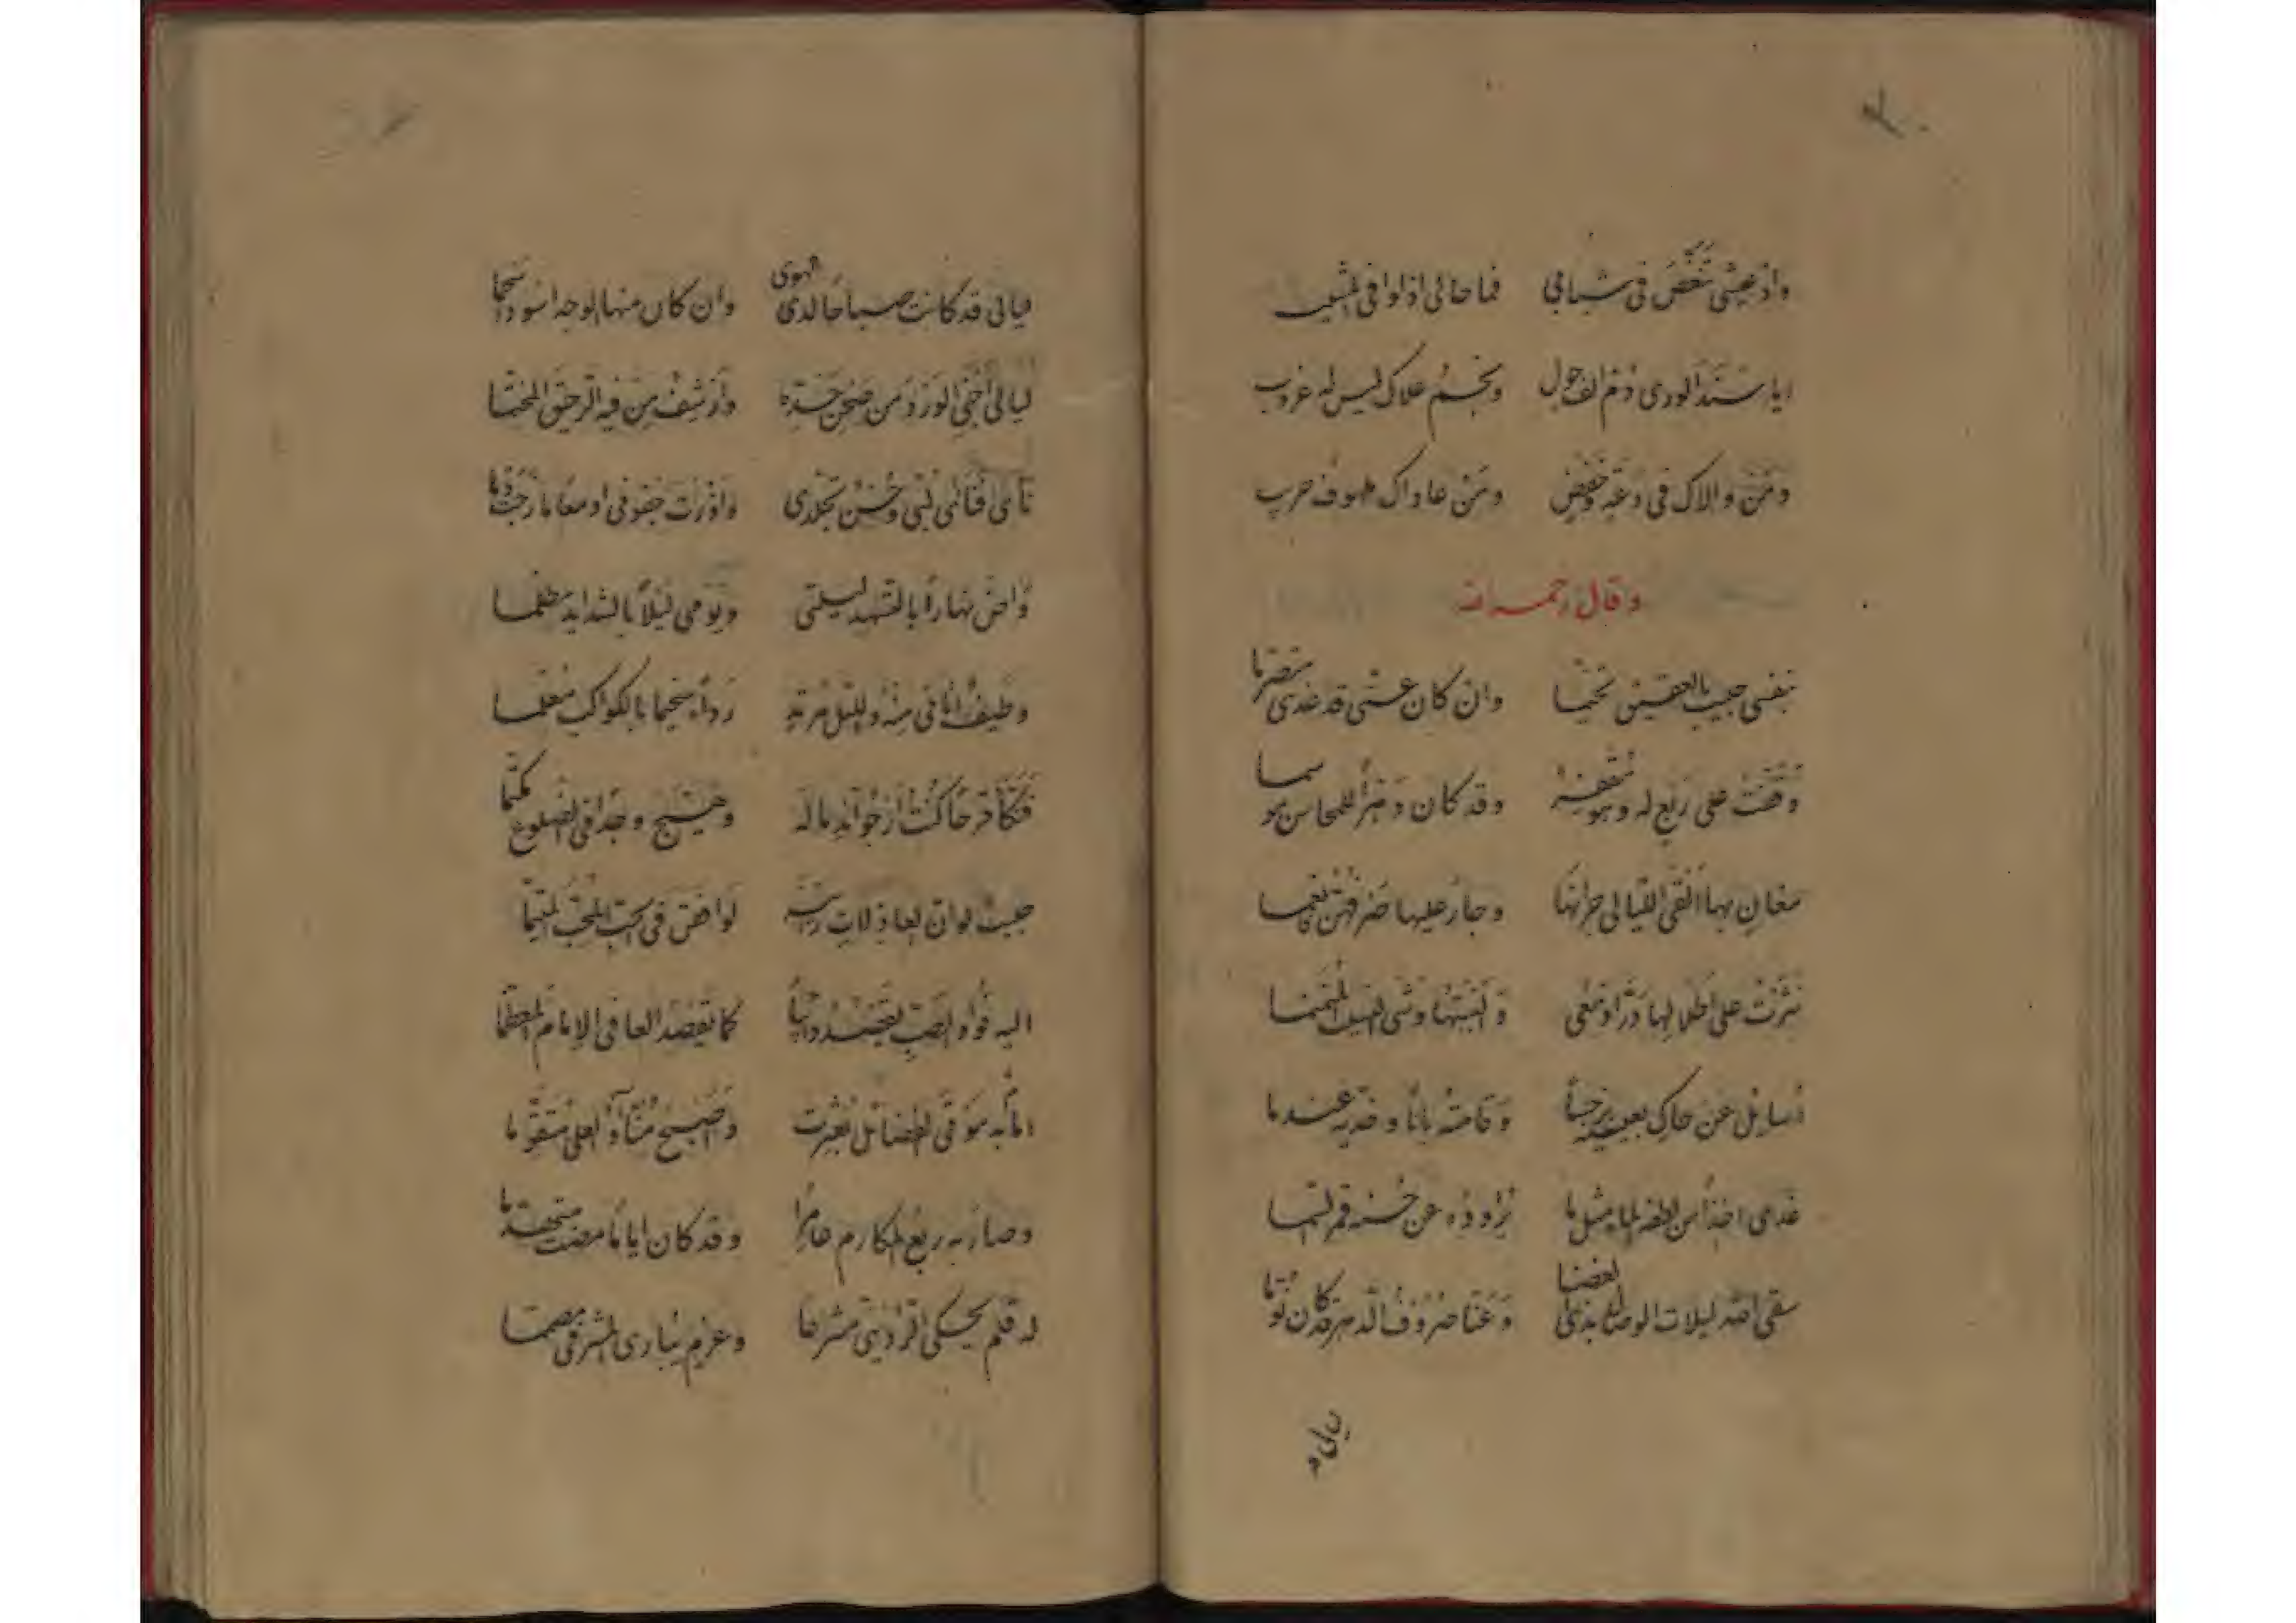 واذ عيشى تنغّص فى شبابى فما حالى اذا وافى المشيب
ايا سند الورى دُم الف حول ونجم علاك ليس له غروب
ومن والاك فى دعة وخفض ومن عاداك حرب
وقال رحمه الله
بنفسى حبيب بالعقيق تخيّما وان كان عنّى قد غدى متصرّما
وقفت على ربع له وهو وقد كان دهرًا للمحاسن موسما
مغان بها القى الليالى جرانها وجار عليها صرفهنّ
نثرت على اطلالها درّ ادمعى والبستها وشى المنمنما
اسايل عن حاكى بعينيه نرجسًا وقامته بانًا وخدّيه عندما
غدى اخذًا من لطفه الما مثل ما عن حسنه قمر السّما
سقى الله ليلات الوصال بذى الغضا وعنّا صروف الدهر قد كنّ نوّما
ليالى
ليالى قد كانت صباحًا لدى الهوى وان كان منها الوجه اسود اسحما
ليالى اجنى الورد من صحن خدّه وارشف من فيه الرحيق المختّما
نأى فنأى لبّى وحسن تجلدى واذرت جفونى ادمعًا مازجت دما
واضحى نهارًا بالتسهد ليلتى ويومى ليلًا بالشدايد مظلما
وطيف اتانى منه والليل مرتد رداء سخيما بالكواكب معلما
قرحًا كنت ارجو اندماله وهيّج وجدًا فى الضلوع مكتّما
حبيب لو ان العاذلات رأينه لوافقن فى حبّ المحبّ المتيّما
اليه فؤاد الصبّ يقصد دائبًا كما يقصد العافى الامام المعظّما
به سوق الفضائل واصبح العلى متقوّما
وصار به ربع المكارم عامرًا وقد كان ايامًا مضت متهدّما
له قلم يحكى الردينىّ مشرعًا وعزم يبارى المشرفىّ مصمّما